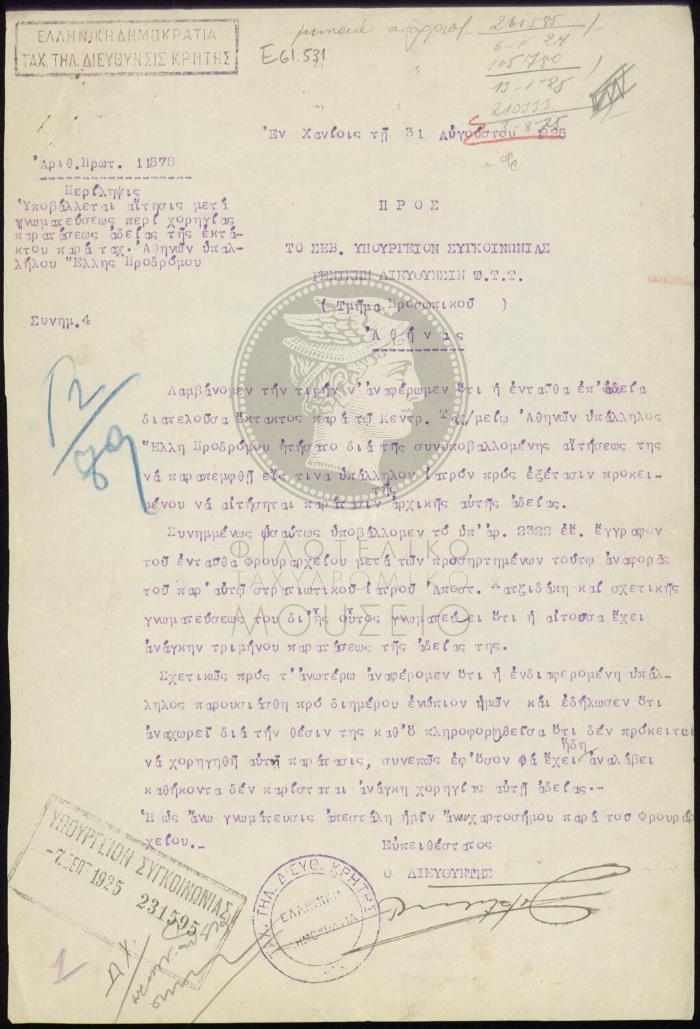 ΕΛΛΗΝΙΚΗ ΔΗΜΟΚΡΑΤΙΑ
ΤΑΧ. ΤΗΛ. ΔΙΕΥΘΥΝΣΙΣ ΚΡΗΤΗΣ
261595
6-11-24
105780
13-1-25
210333
8-8-25
Ε61.531
Ἐν Χανίοις τῇ 31 Αὐγούστου 1925
Ἀριθ.Πρωτ. 11578
Περίληψις
Ὑποβάλλεται αἴτησις μετά
γνωματεύσεως περί χορηγίας
παρατάσεως ἀδείας τῆς ἐκτά-
κτου παρά ταχ. Ἀθηνῶν ὑπαλ-
λήλου Ἕλλης Προδρόμου
Συνημ. 4
ΠΡΟΣ
ΤΟ ΣΕΒ. ΥΠΟΥΡΓΕΙΟΝ ΣΥΓΚΟΙΝΩΝΙΑΣ
ΓΕΝΙΚΗΝ ΔΙΕΥΘΥΝΣΙΝ Τ.Τ.Τ.
( Τμῆμα Προσωπικοῦ )
Ἀθήνας
Λαμβάνομεν τήν τιμήν ν' ἀναφέρωμεν ὅτι ἡ ἐνταῦθα ἐπ' ἀδείᾳ
διατελοῦσα ἔκτακτος παρά τῷ Κεντρ. Ταχ/μείῳ Ἀθηνῶν ὑπάλληλος
Ἕλλη Προδρόμου ᾐτήσατο διά τῆς συνυποβαλλομένης αἰτήσεως της
νά παραπεμφθῇ εἰς τινα ὑπάλληλον ἰατρόν πρός ἐξέτασιν προκει-
μένου νά αἰτήσηται παράτασιν τῆς ἀρχικῆς αὐτῆς ἀδείας.
Συνημμένως ὡσαύτως ὑποβάλλομεν τό ὑπ' ἀρ. 2322 ἐ.ἔ. ἔγγραφον
τοῦ ἐνταῦθα Φρουραρχείου μετά τῶν προσηρτημένων τούτῳ ἀναφορᾶς
τοῦ παρ' αὐτῷ στρατιωτικοῦ ἰατροῦ Ἀποστ. Χατζιδάκη καί σχετικῆς
γνωματεύσεώς του δι' ἧς οὗτος γνωματεύει ὅτι ἡ αἰτοῦσα ἔχει
ἀνάγκην τριμήνου παρατάσεως τῆς ἀδείας της.
Σχετικῶς πρός τ' ἀνωτέρω ἀναφέρομεν ὅτι ἡ ἐνδιαφερομένη ὑπάλ-
ληλος παρουσιάσθη πρό διημέρου ἐνώπιον ἡμῶν καί ἐδήλωσεν ὅτι
ἀναχωρεῖ διά τήν θέσιν της καθ' ὅ πληροφορηθεῖσα ὅτι δέν πρόκειται
νά χορηγηθῇ αὐτῇ παράτασις, συνεπῶς ἐφ' ὅσον θά ἔχει ἤδη ἀναλάβει
καθήκοντα δέν παρίσταται ἀνάγκη χορηγίας αὐτῇ ἀδείας.-
Ἡ ὡς ἄνω γνωμάτευσις ἀπεστάλη ἡμῖν ἄνευ χαρτοσήμου παρά τοῦ Φρουραρ-
χείου.-
Εὐπειθέστατος
Ο ΔΙΕΥΘΥΝΤΗΣ
ΥΠΟΥΡΓΕΙΟΝ ΣΥΓΚΟΙΝΩΝΙΑΣ
-7 ΣΕΠ 1925 231595
ΤΑΧ. ΤΗΛ. ΔΙΕΥΘ. ΚΡΗΤΗΣ
ΕΛΛΗΝΙΚΗ
ΔΗΜΟΚΡΑΤΙΑ
1
ΦΙΛΟΤΕΛΙΚΟ
ΤΑΧΥΔΡΟΜΙΚΟ
ΜΟΥΣΕΙΟ